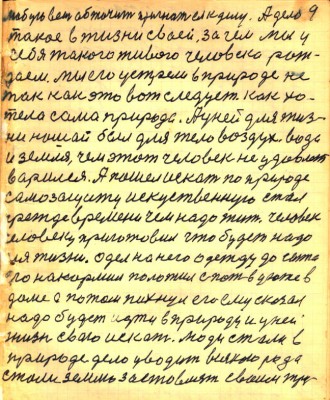 9
А дело
такое в жизни своей, зачем мы у
себя такого живого человека рож-
даем. Мы его устрем в природе не
так как это вот следует. как хо-
тела сама природа. А у ней для жиз-
ни нашай был для тело воздух. вода
и земля, чем этот человек не удовлет
варился. А пошел искат по природе
самозащиту искуственную стал
прежде времени чем надо жит. человек
человеку приготовил что будет надо
для жизни. одел на него одежду до сыта
его накормил положил спот в уюже в
доме а потом пихнул его ему сказал
надо будет идти в природу и у ней
жизн свою искат. Люди стали в
природе дело уводит всякого рода
стали землю заставлят своим тру-